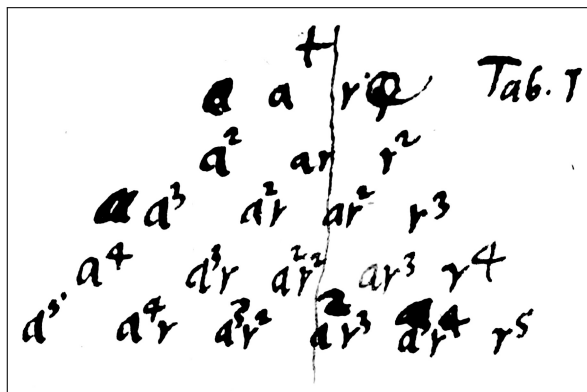 +
a r Tab. I
a² ar r²
a³ a²r ar² r³
a⁴ a³r a²r² ar³ r⁴
a⁵ a⁴r a³r² a²r³ r⁵